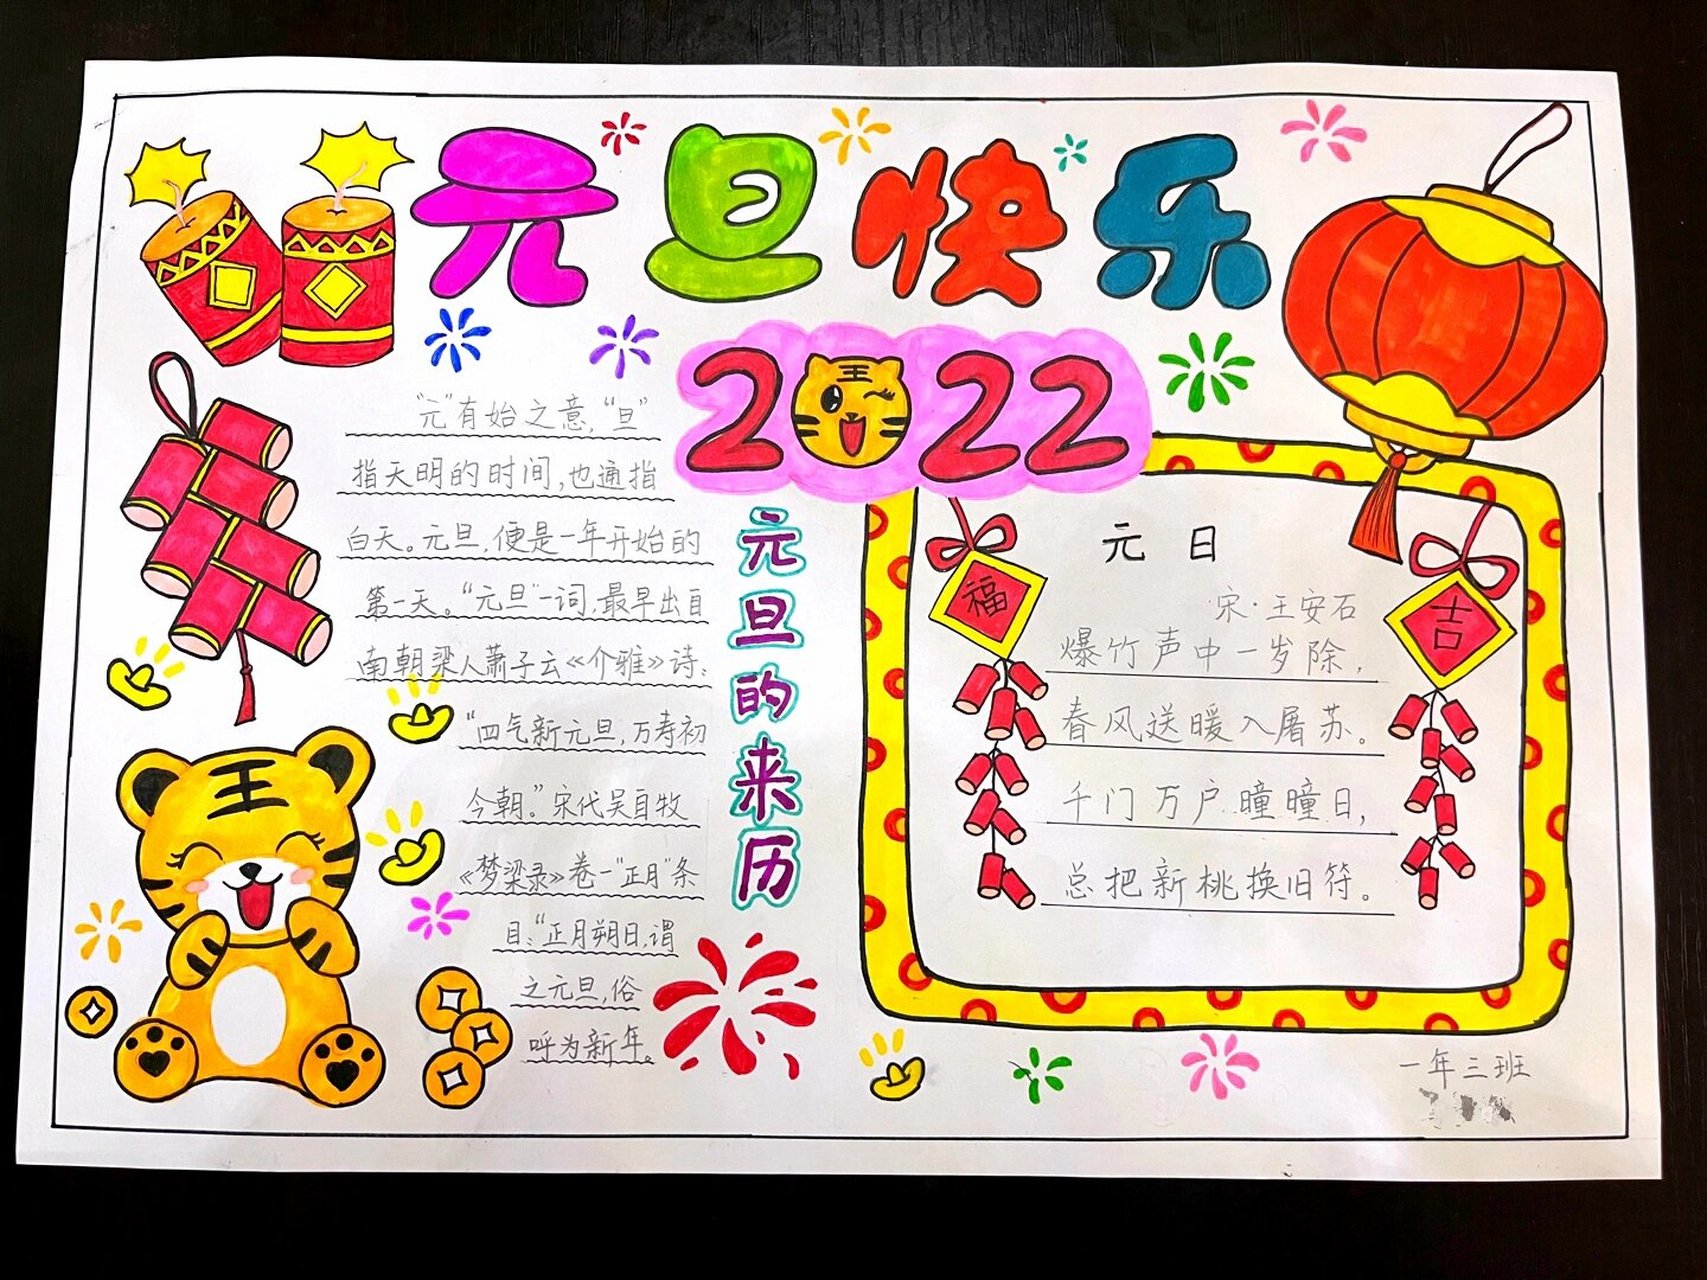 元旦快乐
2022
"元"有始之意,"旦"
指天明的时间,也通指
白天。元旦,便是一年开始的
第一天。"元旦"一词,最早出自
南朝梁人萧子云《介雅》诗:
"四气新元旦,万寿初
今朝。"宋代吴自牧
《梦梁录》卷一"正月"条
目:"正月朔日,谓
之元旦,俗
呼为新年。
元旦的来历
元日
宋·王安石
爆竹声中一岁除,
春风送暖入屠苏。
千门万户曈曈日,
总把新桃换旧符。
福
吉
王
王
一年三班